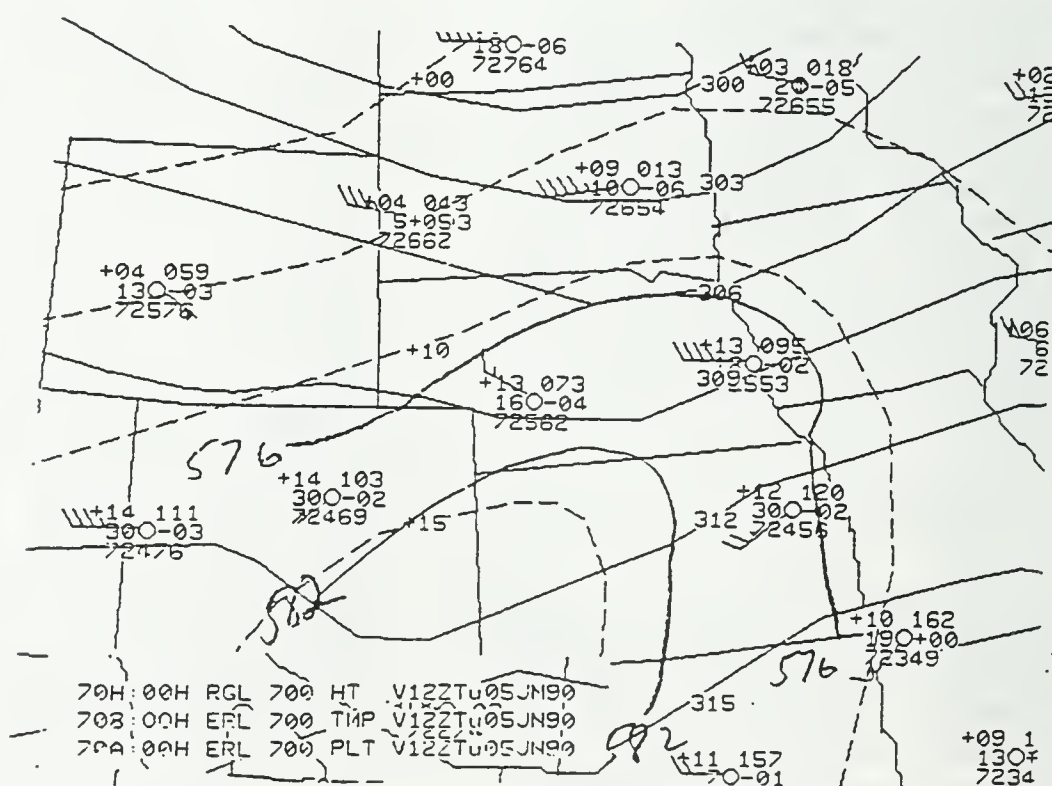 18 -06
72764
+00
300
03 018
2 -05
72655
+02
+09 013
10 -06
72654
303
+04 043
5+053
72662
+04 059
13 -03
72576
306
+10
+13 095
-02
309
553
06
6
72
+13 073
16 -04
72562
576
+14 103
30 -02
72469
+14 111
30 -03
72476
+15
312
+12 120
30 -02
72456
582
+10 162
19 +00
72349
576
70H:00H RGL 700 HT V12ZTu05JN90
70B:00H ERL 700 TMP V12ZTu05JN90
70A:00H ERL 700 PLT V12ZTu05JN90
315
+11 157
-01
+09 1
13
7234